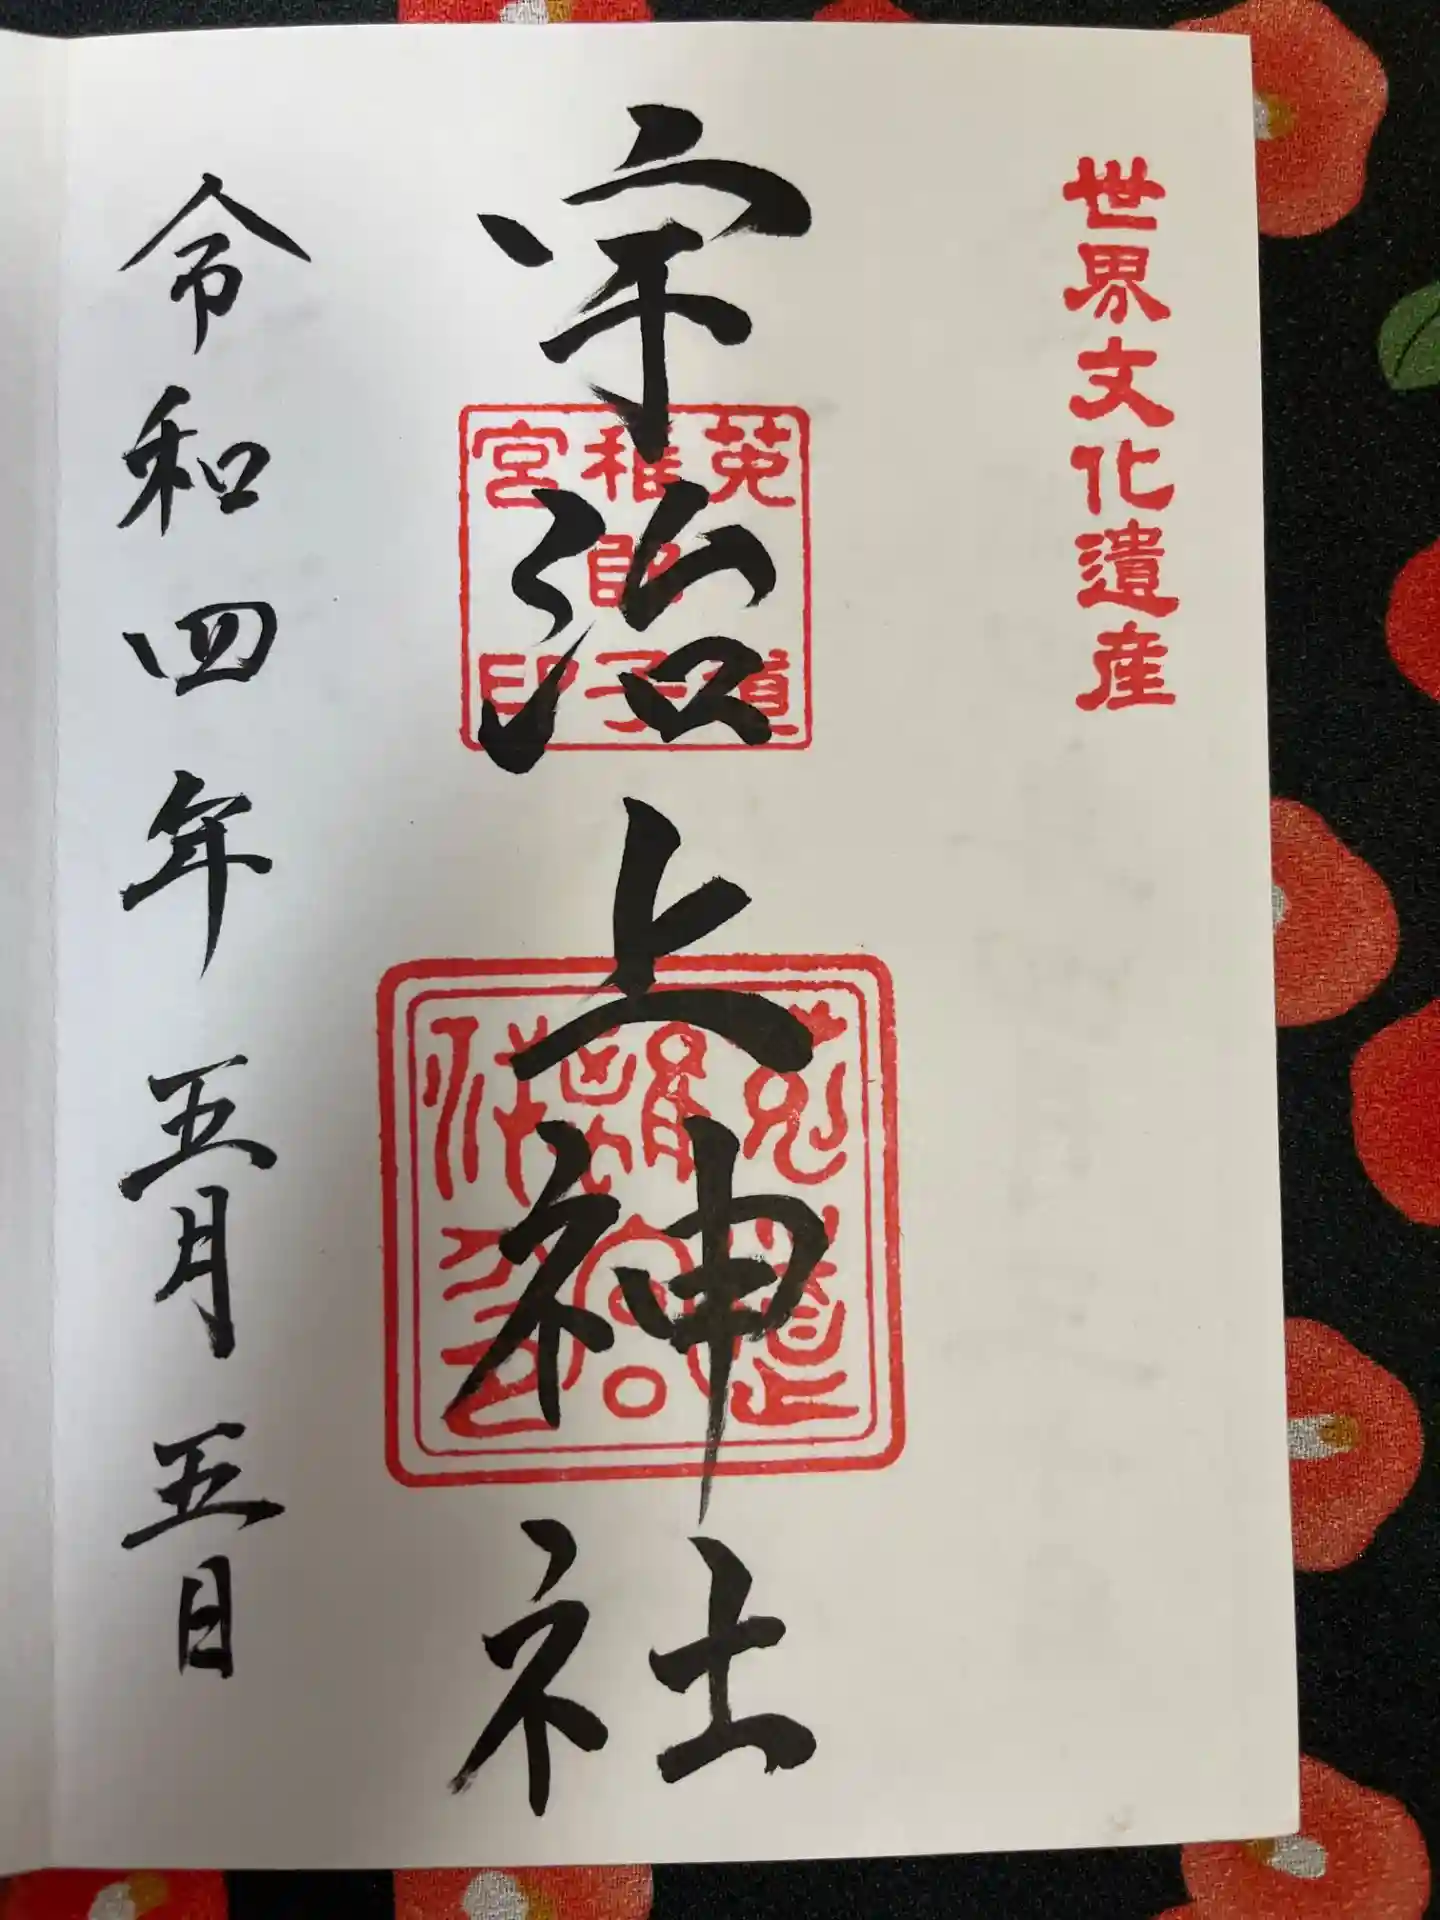 世界文化遺産
宇治上神社
菟道
稚郎子
宮印
令和四年五月五日